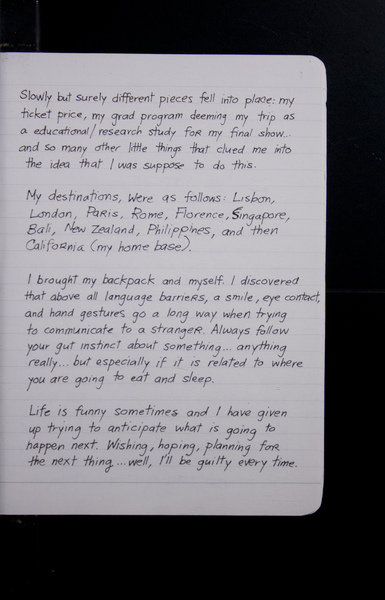 Slowly but surely different pieces fell into place: my
ticket price, my grad program deeming my trip as
a educational/research study for my final show...
and so many other little things that clued me into
the idea that I was suppose to do this.
My destinations, were as follows: Lisbon,
London, Paris, Rome, Florence, Singapore,
Bali, New Zealand, Philippines, and then
California (my home base).
I brought my backpack and myself. I discovered
that above all language barriers, a smile, eye contact,
and hand gestures go a long way when trying
to communicate to a stranger. Always follow
your gut instinct about something... anything
really... but especially if it is related to where
you are going to eat and sleep.
Life is funny sometimes and I have given
up trying to anticipate what is going to
happen next. Wishing, hoping, planning for
the next thing...well, I'll be guilty every time.